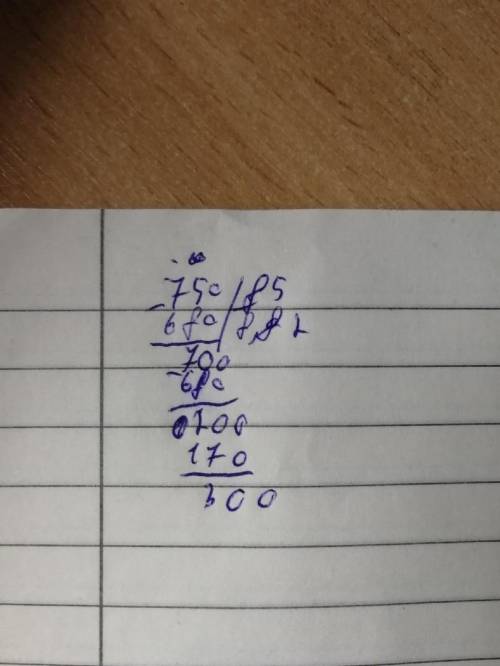 750/85
-680/8,82
700
-680
0200
170
300